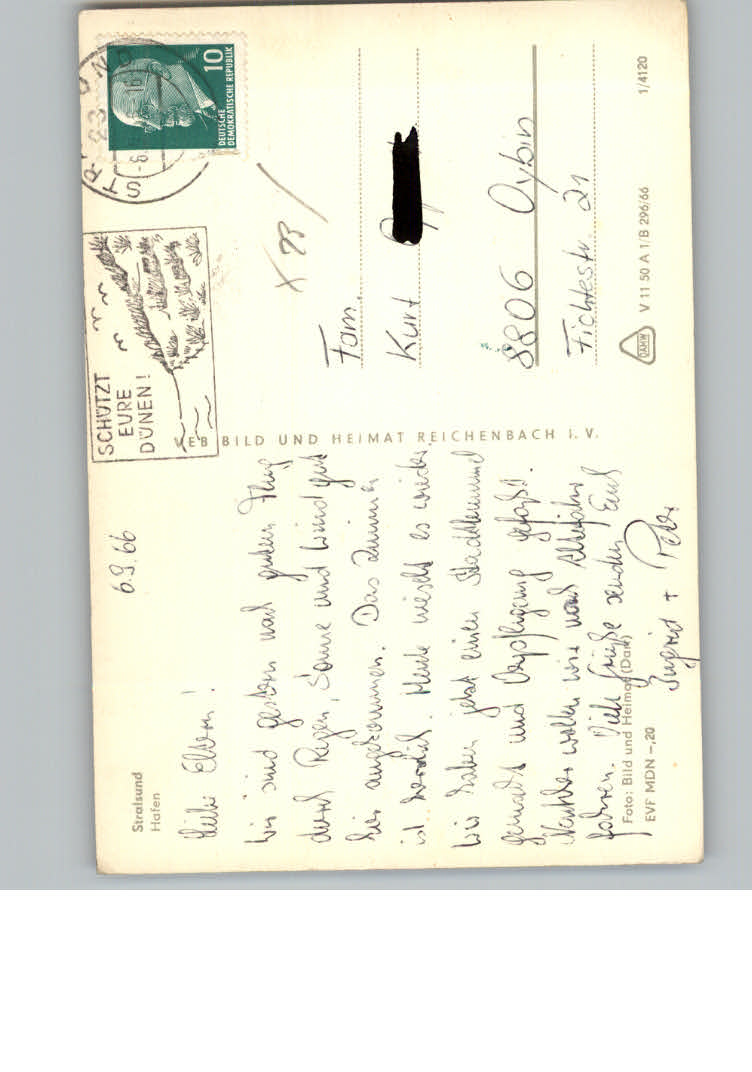 Stralsund
Hafen
6.9.66
Liebe Eltern!
Wir sind gestern nach gutem Flug
durch Regen, Sonne und Wind gut
hier angekommen. Das Zimmer
ist herrlich. Heute nieselt es wieder
Wir haben jetzt einen Stadtbummel
gemacht und Verpflegung gefaßt.
wollen wir nach
fahren. Viele Grüße senden Euch
Ingrid + Peter
Foto: Bild und Heimat (Darr)
EVP MDN -,20
VEB BILD UND HEIMAT REICHENBACH I. V.
SCHÜTZT
EURE
DÜNEN!
STR UND
23
-6. 16
10
DEUTSCHE
DEMOKRATISCHE REPUBLIK
Fam.
Kurt
8806 Oybin
Fichtestr. 21
DAMW
V 11 50 A 1/B 296/66
1/4120